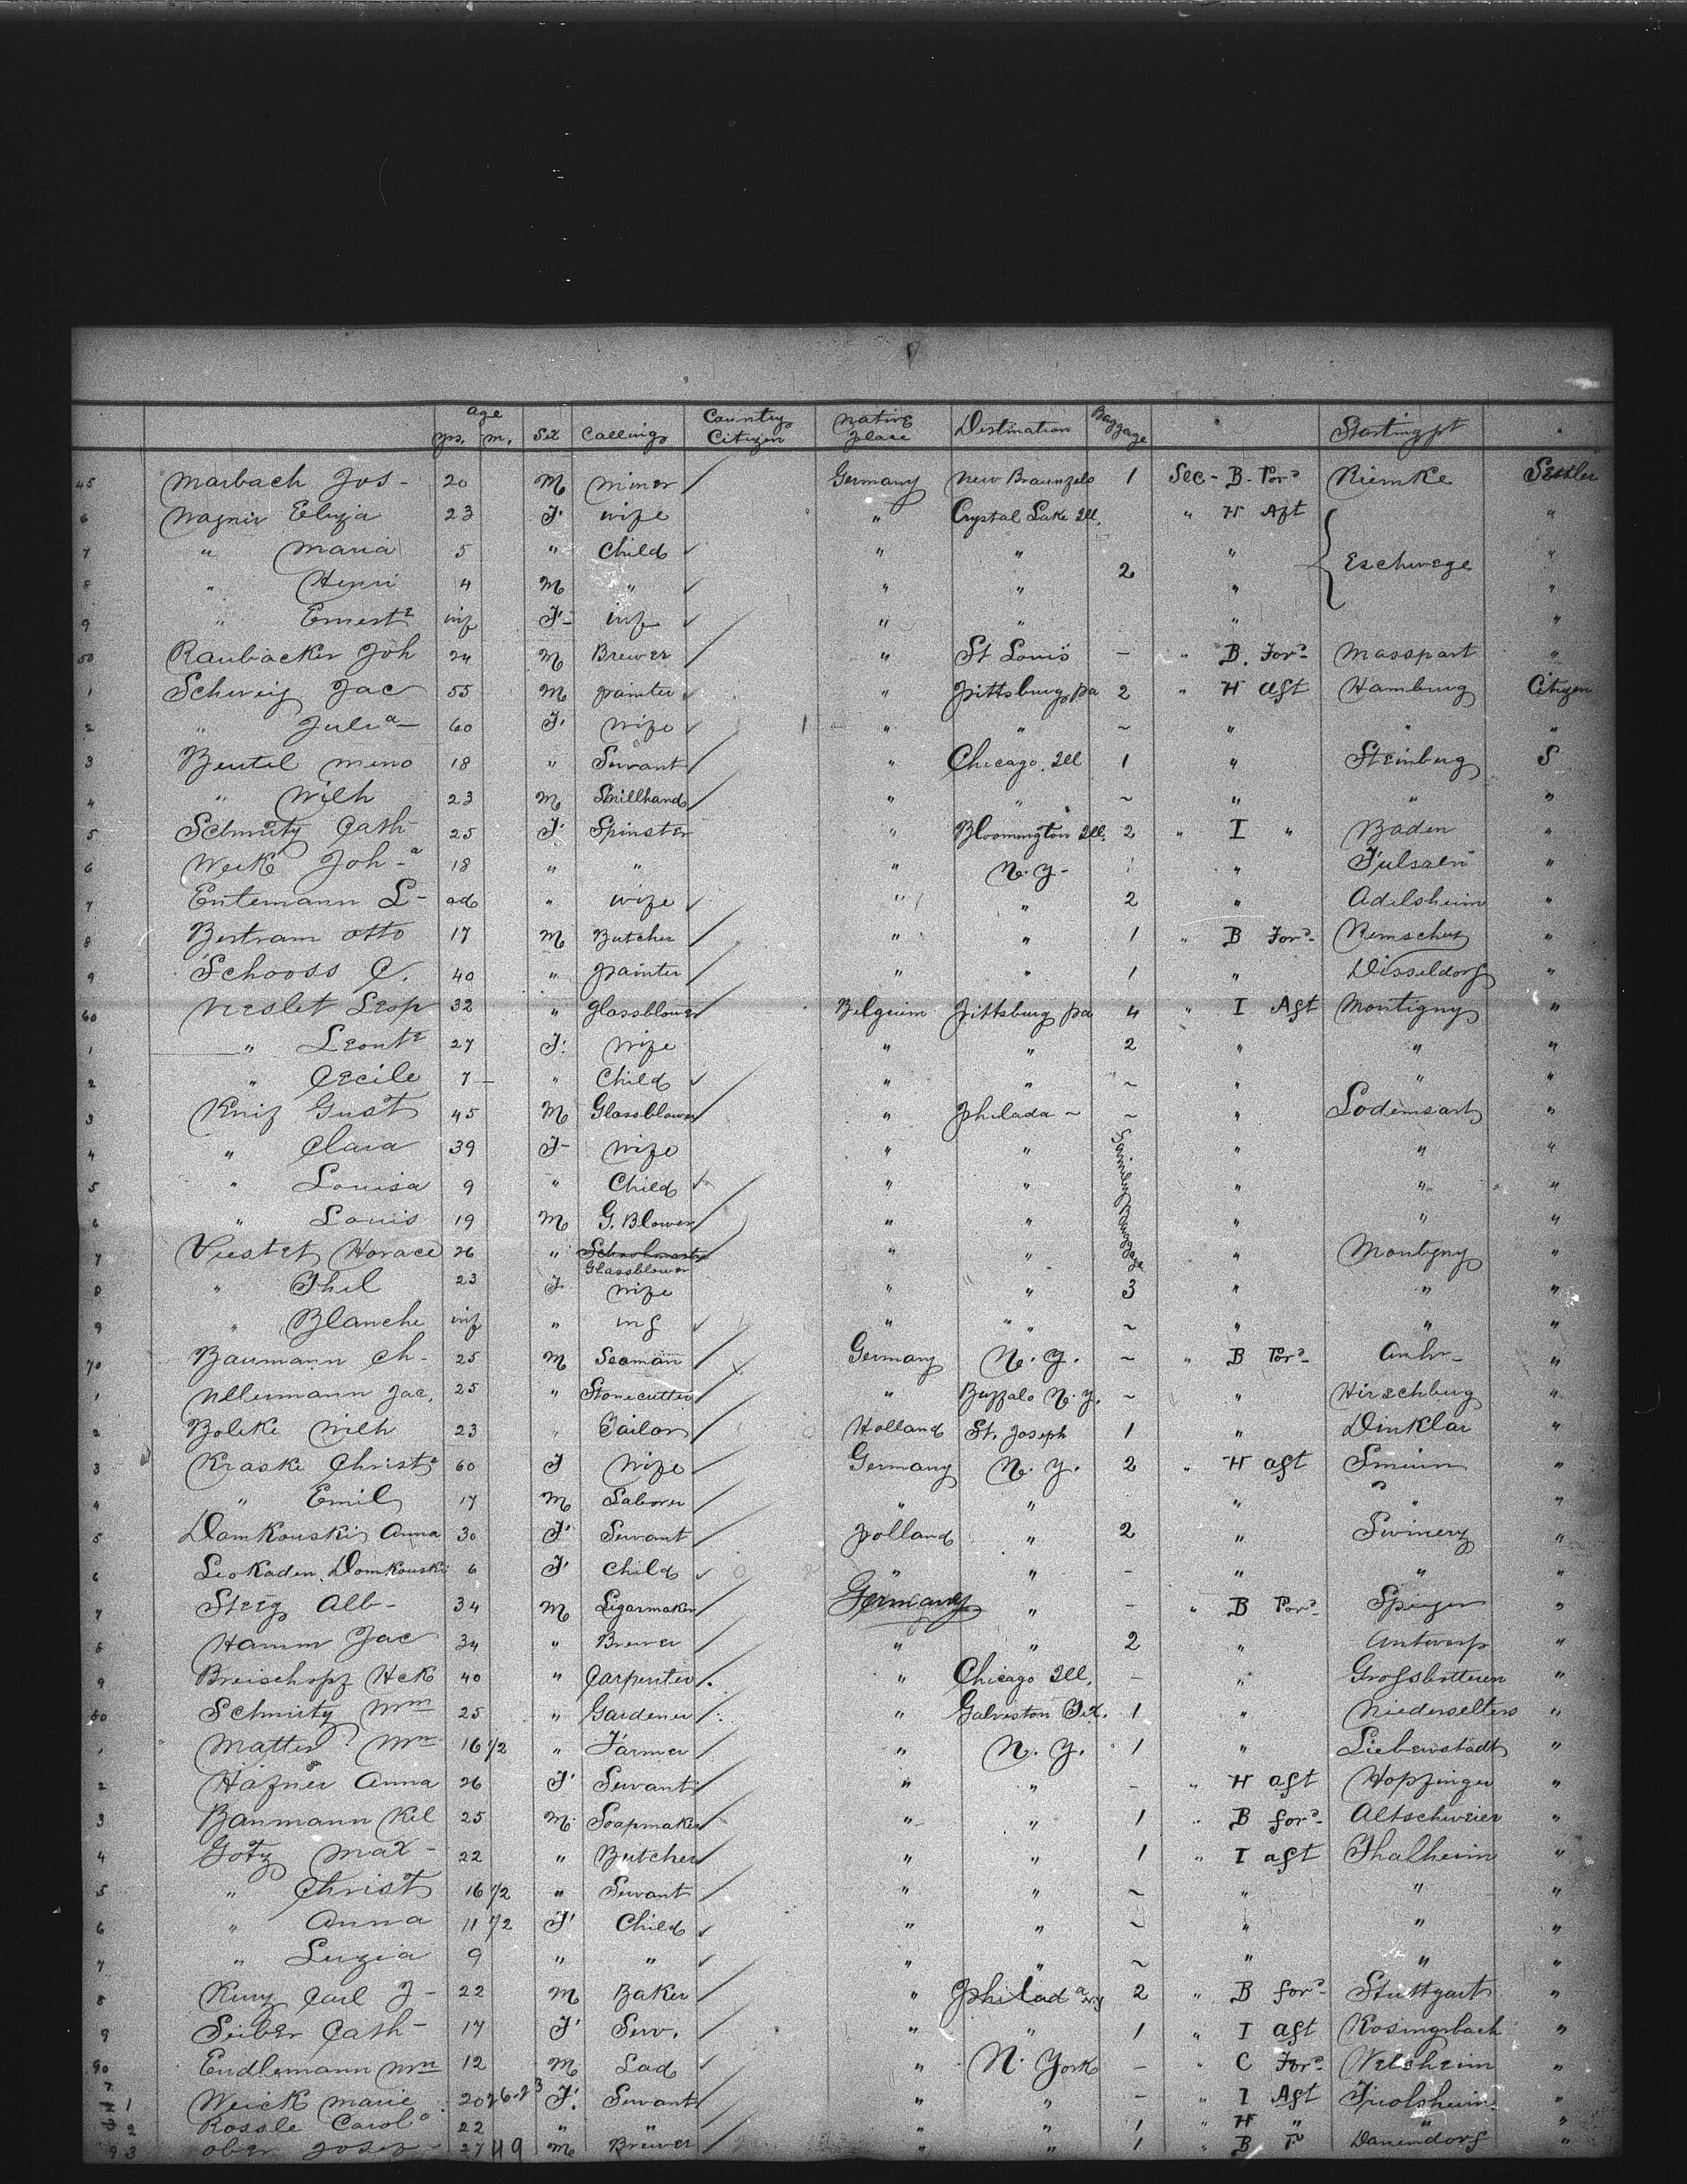 age Country Native Baggage
yrs. m. Sex Calling Citizen place Destination Startingpt
45 Marbach Jos - 20 M Miner / Germany New Braunfels 1 Sec - B. For^d Riemke Settler
6 Wagnir Eliza 23 F wife " Crystal Lake Ill. " H Aft "
7 " Maria 5 " Child ✓ " " " Eschwege "
8 " Henri 4 M " ✓ " " 2 " "
9 " Ernest^e inf F - inf ✓ " " " "
50 Raubacker Joh 24 M Brewer / " St Louis - " B. For^d Masspart "
1 Schweig Jac 55 M painter ✓ " Pittsburg pa 2 " H aft Hamburg Citizen
2 " Juli^a - 60 F wife ✓ " " ~ " " "
3 Beutel Meno 18 " Servant / " Chicago. Ill 1 " Steinburg S
4 " Wilh 23 M Millhand / " " ~ " " "
5 Schmitz Cath 25 F Spinster " Bloomington Ill. 2 " I " Baden "
6 Weik Joh - ^a 18 " " " N. Y - " "
7 Entemann L - ad " wife ✓ " " 2 " Adelsheim "
8 Bertram Otto 17 M Butcher / " " 1 " B For^d Remscheid "
9 Schooss C. 40 " painter / " " 1 " Disseldorf "
60 Neslet Leop 32 " glassblower / Belgium Pittsburg pa 4 " I Aft Montigny "
1 " Leont^e 27 F. Wife " " 2 " " "
2 " Cecile 7 - " Child ✓ " " ~ " " "
3 Knif Gust 45 M Glassblower / " Philada ~ ~ " Lodemsart "
4 " Clara 39 F - wife " " Family Baggage " " "
5 " Louisa 9 " Child ✓ " " " " "
6 " Louis 19 M G. Blower / " " " " "
7 Viestet Horace 26 " Schoolmaster " " " Montigny "
Glassblower
8 " Phil 23 F. wife " " 3 " " "
9 " Blanche inf " inf ✓ " " ~ " " "
70 Baumann Ch - 25 M Seaman / Germany N. Y. ~ " B For^d "
1 Ullermann Jac. 25 " Stonecutter / " Buffalo N. Y. ~ " Hirschburg "
2 Boleke Wilh 23 " Tailor / Holland St. Joseph 1 " Dinklar "
3 Kraske Christ^e 60 F Wife / Germany N. Y. 2 " H aft "
4 " Emil 17 M Laborer / " " " " "
5 Domkouski Anna 30 F Servant / Polland " 2 " Swinery "
6 Leokaden. Domkouski 6 F Child ✓ " " - " " "
7 Steeg Alb - 34 M Segarmaker / Germany " - " B For^d "
8 Hamm Jac 34 " Brewer / " " 2 " Antwerp "
9 Breischopf Hck 40 " Carpenter / " Chicago Ill. - " Grossbotteren "
80 Schmitz Wm 25 " Gardener / " Galveston Tex. 1 " Niederselters "
1 Matter Wm 16 1/2 " Farmer / " N. Y. 1 " Liebenstadt "
2 Häfner Anna 26 F Servant / " " - " H aft Hopfinger "
3 Banmann Kil 25 M. Soapmaker / " " 1 " B for^d Altschweier "
4 Gotz Max - 22 " Butcher / " " 1 " I aft Thalheim "
5 " Christ 16 1/2 " Servant / " " ~ " " "
6 " Anna 11 1/2 F Child ✓ " " ~ " " "
7 " Luzia 9 " " ✓ " " ~ " " "
8 Kurz Carl J - 22 M Baker / " Philad^a 2 " B for^d Stuttgart "
9 Seiber Cath - 17 F Serv. / " " 1 " I aft Rosingsbach "
90 Endlemann Wm 12 M Lad ✓ " N. York - " C For^d Welsheim "
1 Weick Marie 20 26-23 F. Servant / " " - " I Aft Friolsheim "
2 Rossle Carol^a 22 " " / " " 1 " H " " "
93 Ober Josef - 27 49 M Brewer / " " 1 " B F^d Danendorf "